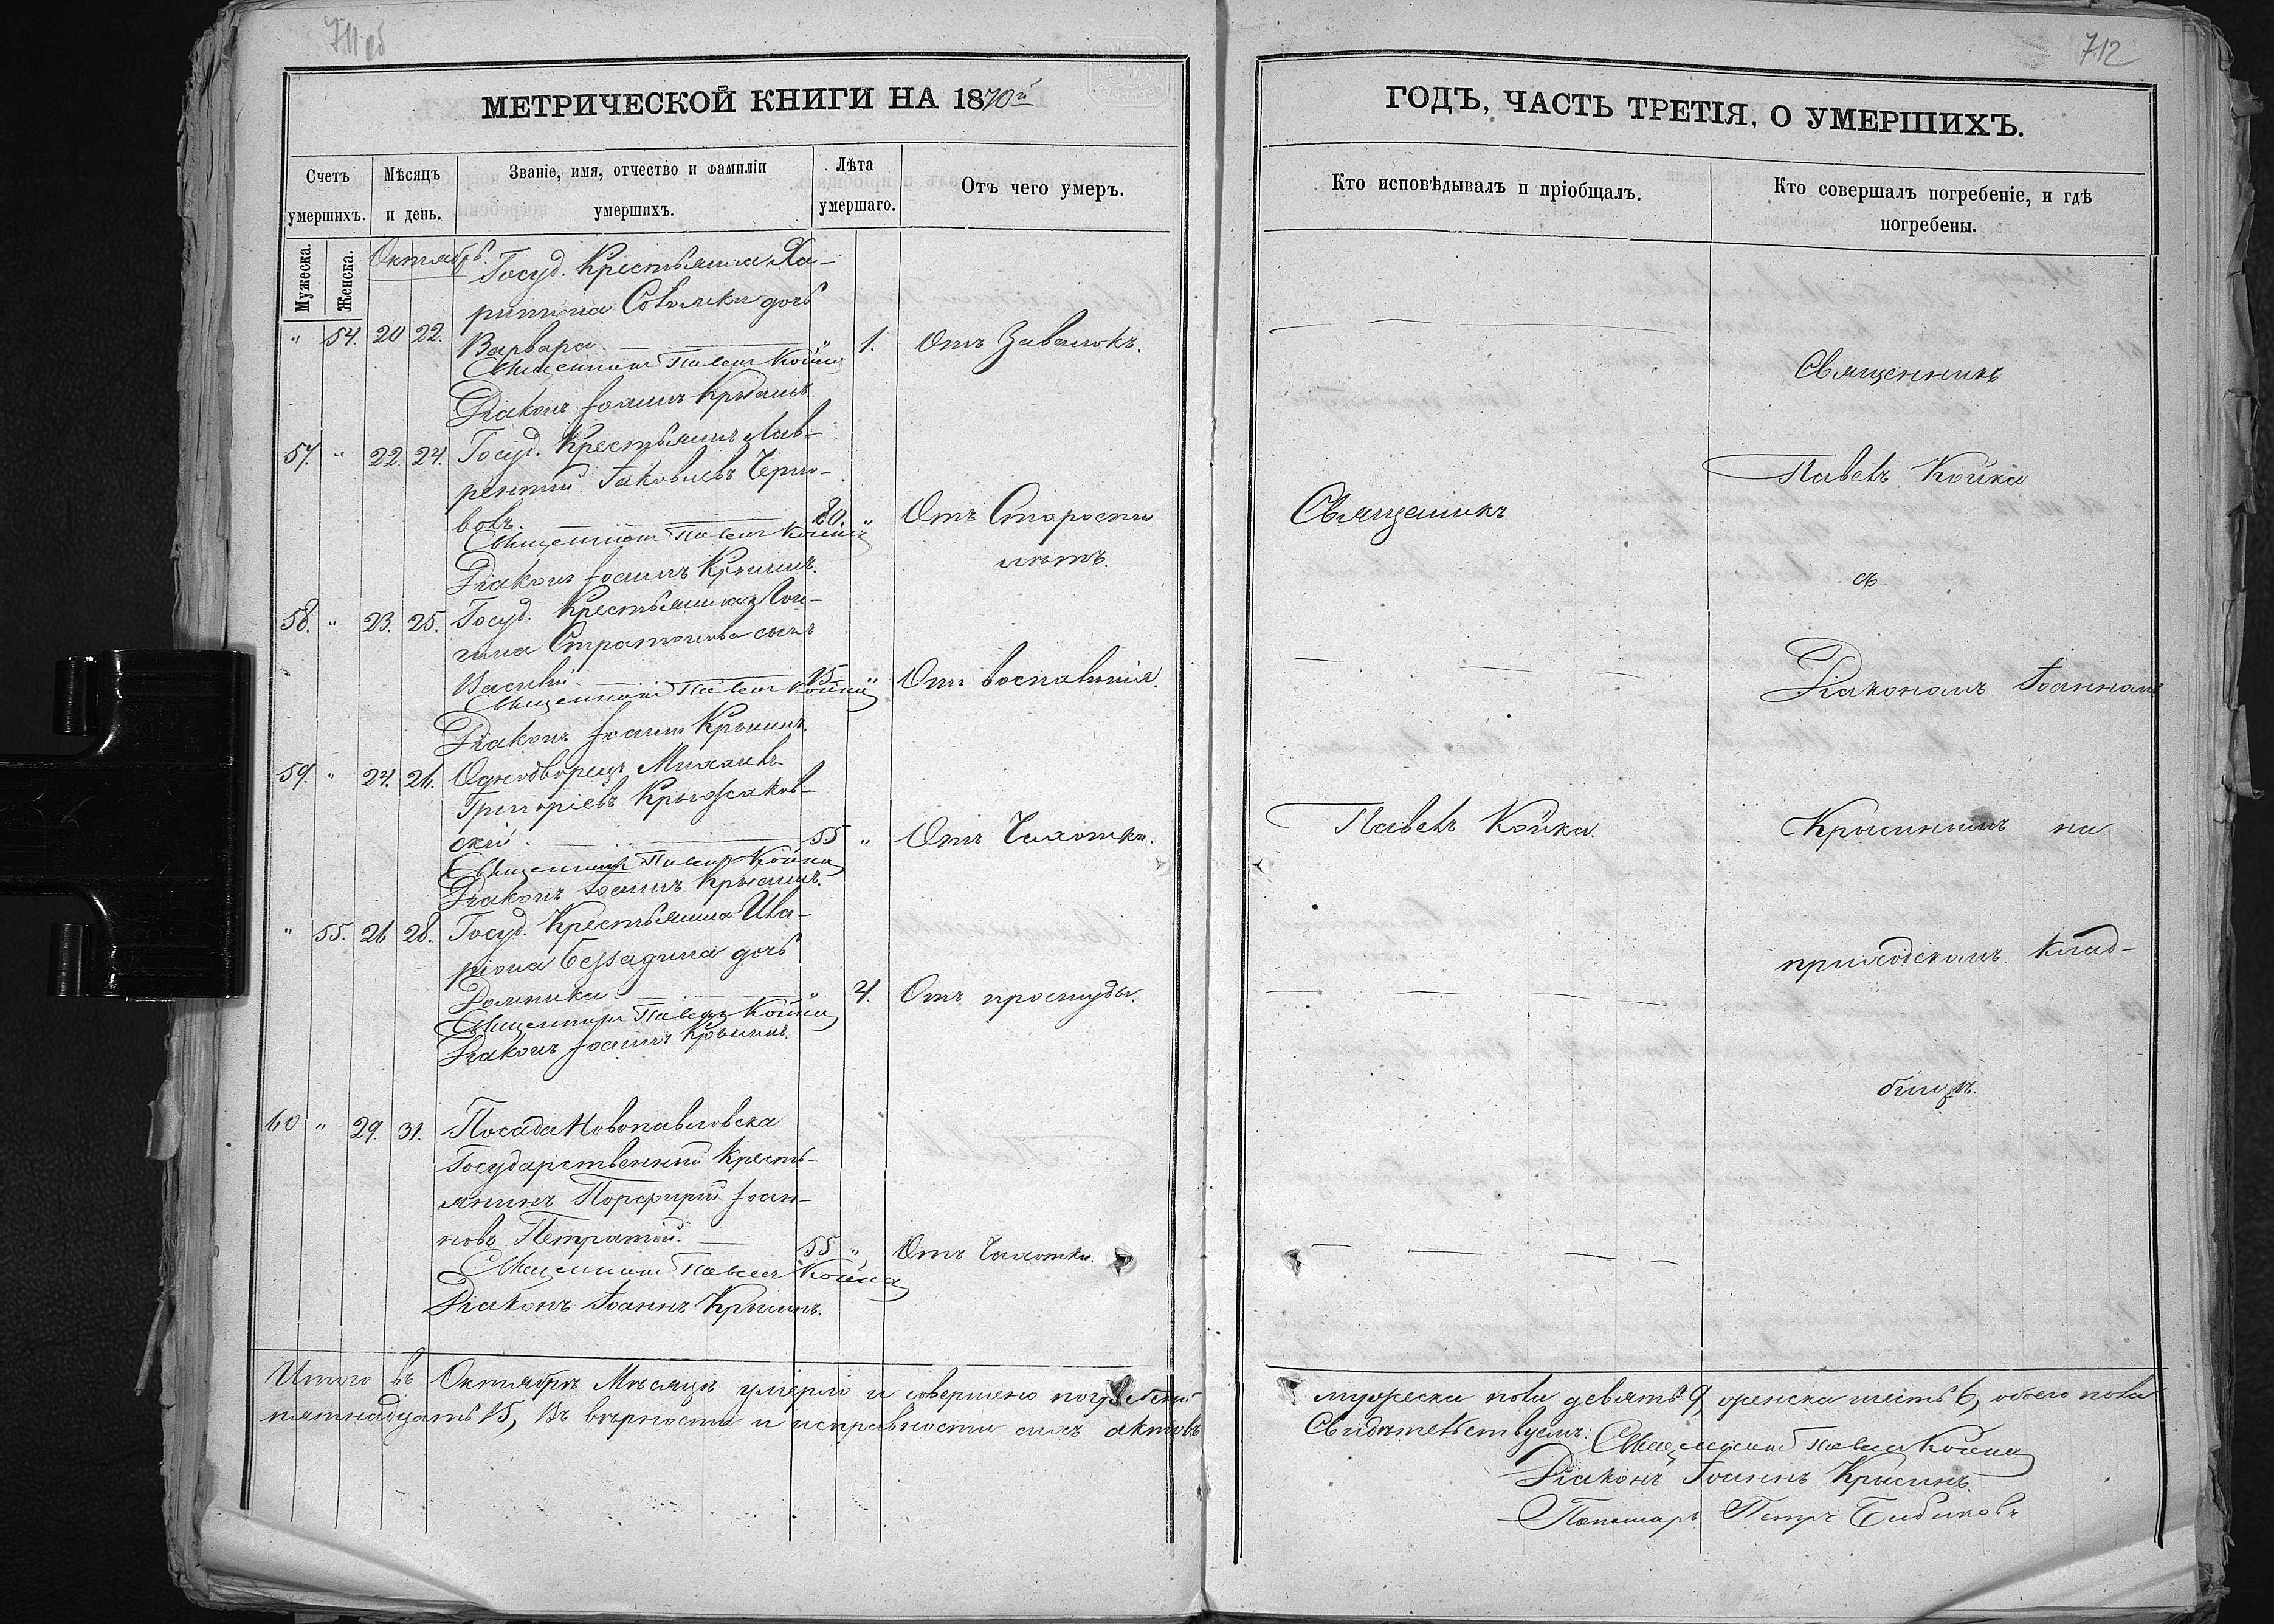 711 об
МЕТРИЧЕСКОЙ КНИГИ НА 1870й
Счетъ умершихъ.
Мѣсяцъ и день.
Званіе, имя, отчество и фамиліи умершихъ.
Лѣта умершаго.
Отъ чего умеръ.
Мужеска.
Женска.
Октябрь.
Госуд. Крестьянина Ха-
ритона дочь
" 54. 20 22. Варвара. " 1. Отъ Завалокъ.
Священникъ Павелъ Койка
Діаконъ Іоаннъ Крысинъ.
57. " 22. 24. Госуд. Крестьянинъ Лав-
рентий Іаковлевъ Черно-
волъ. 80. " Отъ Старости
лѣтъ.
Священникъ Павелъ Койка
Діаконъ Іоаннъ Крысинъ.
58. " 23. 25. Госуд. Крестьянина Лон-
гина сынъ
Василій. 15 " Отъ воспаленія.
Священникъ Павелъ Койка
Діаконъ Іоаннъ Крысинъ.
59. " 24. 26. Однодворецъ Михаилъ
Григоріевъ Крыжаков-
скій. 55 " Отъ Чахотки.
Священникъ Павелъ Койка
Діаконъ Іоаннъ Крысинъ.
" 55. 26 28. Госуд. Крестьянина Ила-
ріона дочь
Домника. " 4. Отъ простуды.
Священникъ Павелъ Койка
Діаконъ Іоаннъ Крысинъ.
60 " 29. 31. Посада Новопавловска
Государственный Кресть-
янинъ Порфирий Іоан-
новъ Петратій. 55 " Отъ Чахотки.
Священникъ Павелъ Койка
Діаконъ Іоаннъ Крысинъ.
Итого въ Октябрѣ Мѣсяцѣ умерло и совершено погребеній
пятнадцать 15, Въ вѣрности и исправности сихъ актовъ
712
ГОДЪ, ЧАСТЬ ТРЕТІЯ, О УМЕРШИХЪ.
Кто исповѣдывалъ и пріобщалъ.
Кто совершалъ погребеніе, и гдѣ погребены.
Священникъ
Павелъ Койка.
Священникъ
Павелъ Койка
съ
Діакономъ Іоанномъ
Крысинымъ на
приходскомъ Клад-
бищѣ.
мужеска пола девять 9, женска шесть 6, обоего пола
Свидѣтельствуемъ: Священникъ Павелъ Койка
Діаконъ Іоаннъ Крысинъ.
Пономарь Петръ Бибиковъ